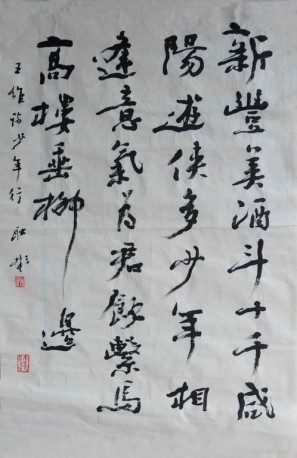 新豐美酒斗十千咸
陽遊俠多少年相
逢意氣為君飲繫馬
高樓垂柳邊
王維詩少年行